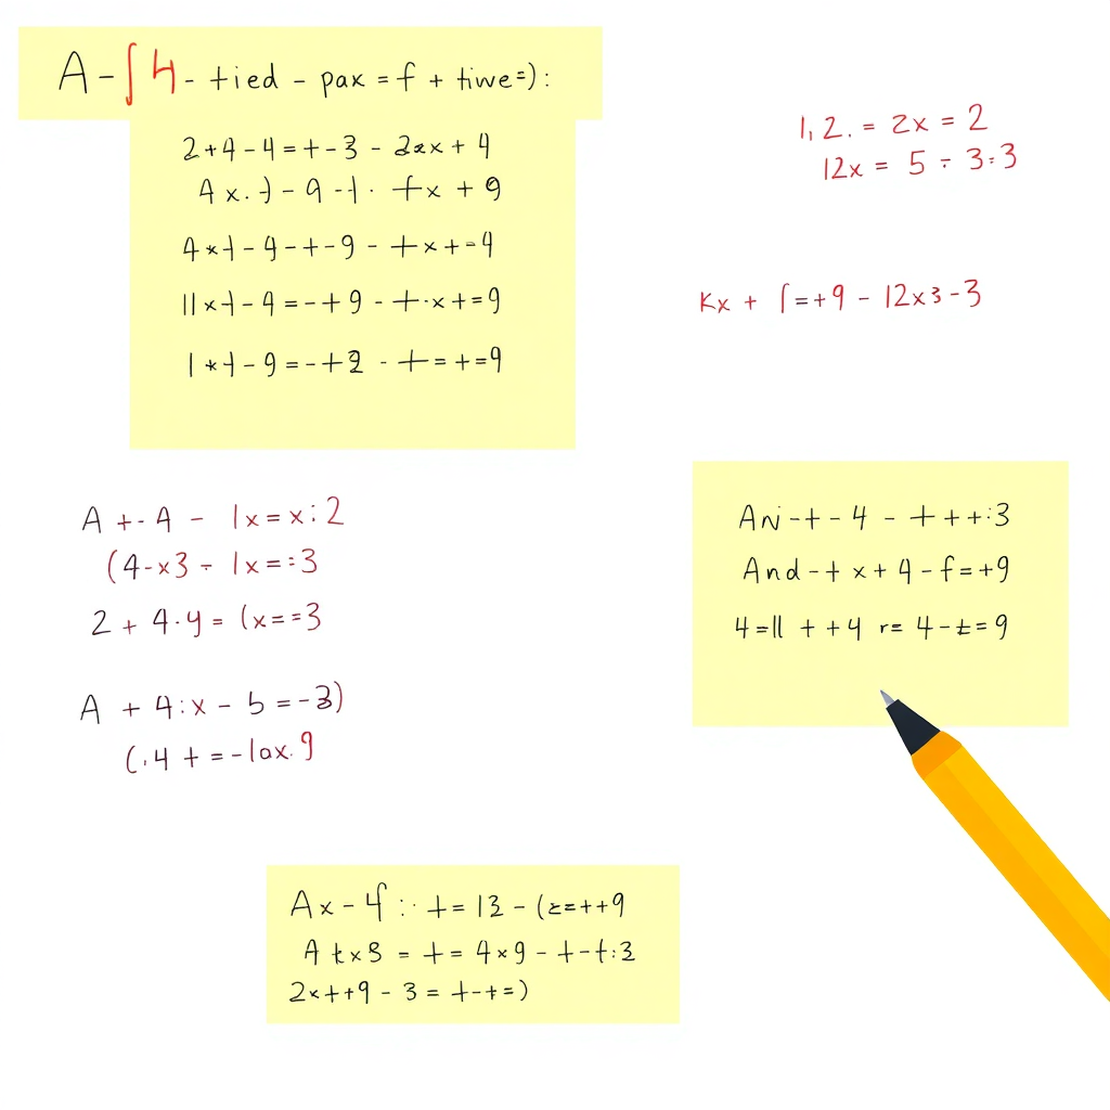 A-∫4- tied - pax = f + tiwe=):
2+4-4=+-3 - 2x+4
4x.+-9-1. +x+9
4*+-4-+-9 - +x+=4
11x+-4=-+9 - +·x+=9
1*+-9=-+2 - +=+=9
1,2.=2x=2
12x = 5 ÷ 3:3
Kx + ∫=+9 - 12x3-3
A +- A - 1x=x:2
(4-x3 - 1x=:3
2 + 4.y = (x==3
A + 4:x - 5 =-3)
(.4 + =-lax.9
AN-+-4 - +++:3
And-+ x+4-f=+9
4=11 ++4 r= 4-t=9
Ax-4f:· += 13 - (z=++9
A txs = += 4x9 - +-t:3
2x++9 - 3 = +-+=)